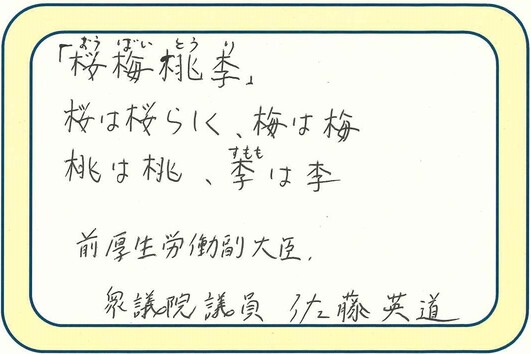 おうばいとうり
「桜梅桃李」
桜は桜らしく、梅は梅
すもも
桃は桃、李は李
前厚生労働副大臣.
衆議院議員 佐藤英道